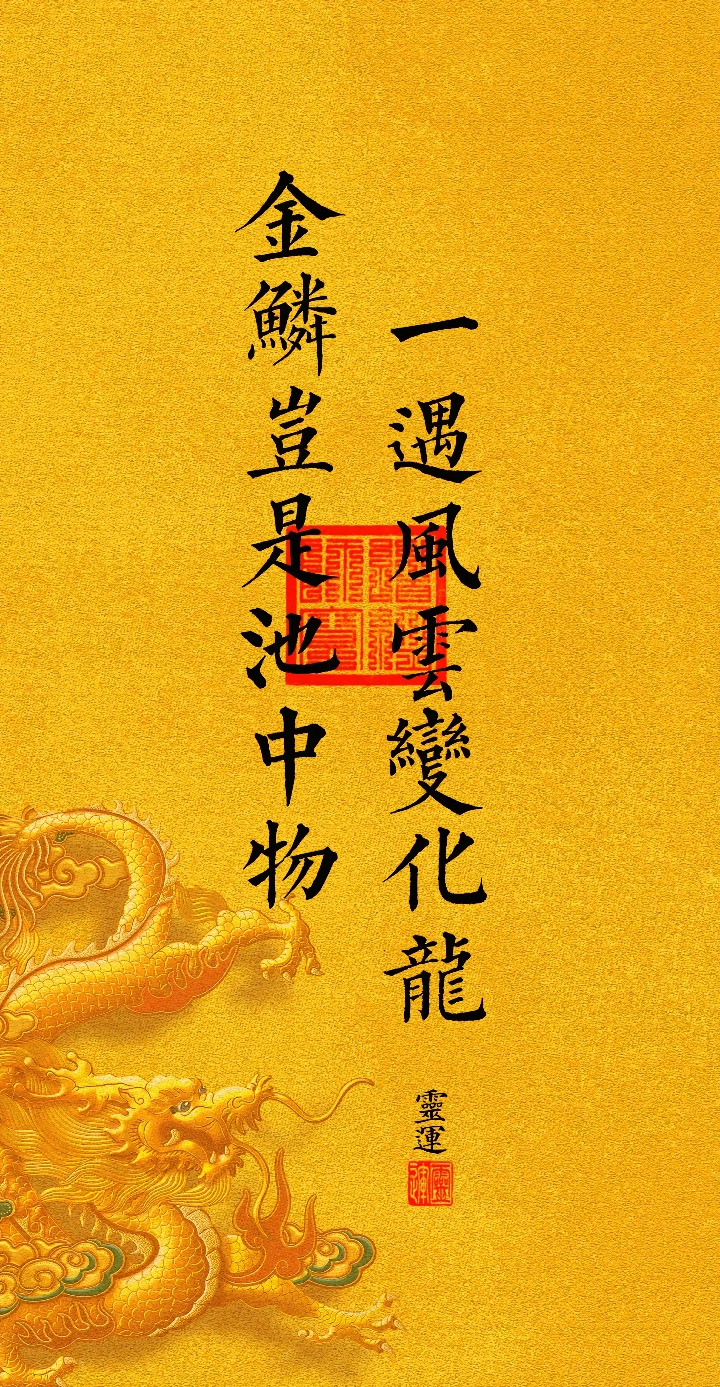 金鱗豈是池中物
一遇風雲變化龍
靈運
靈運